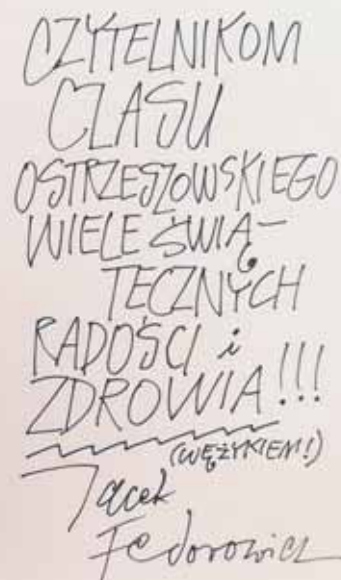 CZYTELNIKOM
CZASU
OSTRZESZOWSKIEGO
WIELE ŚWIĄ-
TECZNYCH
RADOŚCI i
ZDROWIA!!!
(WĘŻYKIEM!)
Jacek
Fedorowicz